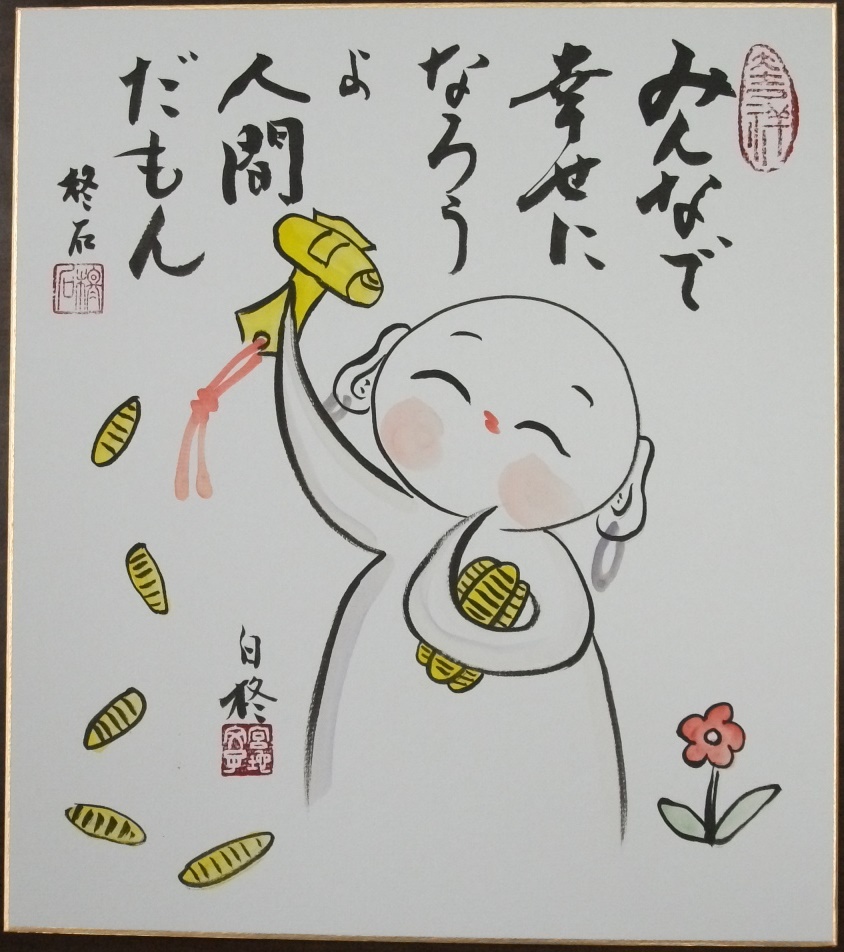 みんなで
幸せに
なろう
よ
人間
だもん
柊石
白柊